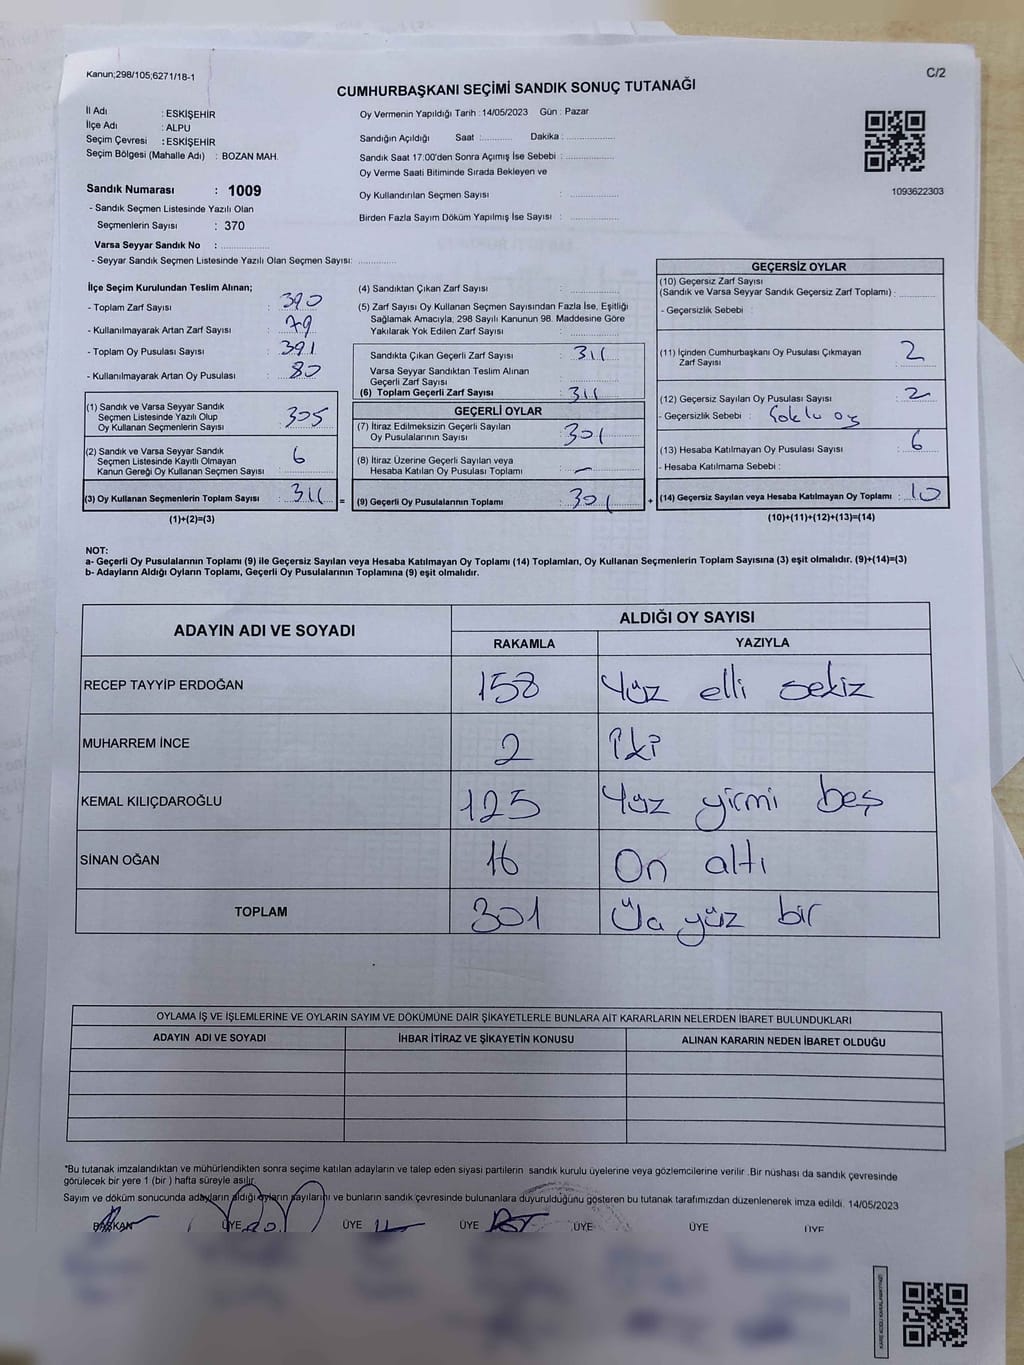 Kanun;298/105;6271/18-1
C/2
CUMHURBAŞKANI SEÇİMİ SANDIK SONUÇ TUTANAĞI
İl Adı : ESKİŞEHİR
İlçe Adı : ALPU
Seçim Çevresi : ESKİŞEHİR
Seçim Bölgesi (Mahalle Adı) : BOZAN MAH.
Oy Vermenin Yapıldığı Tarih : 14/05/2023 Gün : Pazar
Sandığın Açıldığı Saat :............ Dakika :..................
Sandık Saat 17:00'den Sonra Açımış İse Sebebi :..................
Oy Verme Saati Bitiminde Sırada Bekleyen ve
Oy Kullandırılan Seçmen Sayısı :..................
Birden Fazla Sayım Döküm Yapılmış İse Sayısı :..................
1093622303
Sandık Numarası : 1009
- Sandık Seçmen Listesinde Yazılı Olan
Seçmenlerin Sayısı : 370
Varsa Seyyar Sandık No :..................
- Seyyar Sandık Seçmen Listesinde Yazılı Olan Seçmen Sayısı:..............
İlçe Seçim Kurulundan Teslim Alınan;
- Toplam Zarf Sayısı : 390
- Kullanılmayarak Artan Zarf Sayısı : 79
- Toplam Oy Pusulası Sayısı : 391
- Kullanılmayarak Artan Oy Pusulası : 80
(1) Sandık ve Varsa Seyyar Sandık
Seçmen Listesinde Yazılı Olup
Oy Kullanan Seçmenlerin Sayısı : 305
(2) Sandık ve Varsa Seyyar Sandık
Seçmen Listesinde Kayıtlı Olmayan
Kanun Gereği Oy Kullanan Seçmen Sayısı : 6
(3) Oy Kullanan Seçmenlerin Toplam Sayısı : 311 =
(1)+(2)=(3)
(4) Sandıktan Çıkan Zarf Sayısı :
(5) Zarf Sayısı Oy Kullanan Seçmen Sayısından Fazla İse, Eşitliği
Sağlamak Amacıyla, 298 Sayılı Kanunun 98. Maddesine Göre
Yakılarak Yok Edilen Zarf Sayısı :
Sandıkta Çıkan Geçerli Zarf Sayısı : 311
Varsa Seyyar Sandıktan Teslim Alınan
Geçerli Zarf Sayısı :
(6) Toplam Geçerli Zarf Sayısı : 311
GEÇERLİ OYLAR
(7) İtiraz Edilmeksizin Geçerli Sayılan
Oy Pusulalarının Sayısı : 301
(8) İtiraz Üzerine Geçerli Sayılan veya
Hesaba Katılan Oy Pusulası Toplamı : —
(9) Geçerli Oy Pusulalarının Toplamı : 301 +
GEÇERSİZ OYLAR
(10) Geçersiz Zarf Sayısı
(Sandık ve Varsa Seyyar Sandık Geçersiz Zarf Toplamı) :
- Geçersizlik Sebebi :
(11) İçinden Cumhurbaşkanı Oy Pusulası Çıkmayan
Zarf Sayısı : 2
(12) Geçersiz Sayılan Oy Pusulası Sayısı : 2
- Geçersizlik Sebebi : Çoklu oy
(13) Hesaba Katılmayan Oy Pusulası Sayısı : 6
- Hesaba Katılmama Sebebi :
(14) Geçersiz Sayılan veya Hesaba Katılmayan Oy Toplamı : 10
(10)+(11)+(12)+(13)=(14)
NOT:
a- Geçerli Oy Pusulalarının Toplamı (9) ile Geçersiz Sayılan veya Hesaba Katılmayan Oy Toplamı (14) Toplamları, Oy Kullanan Seçmenlerin Toplam Sayısına (3) eşit olmalıdır. (9)+(14)=(3)
b- Adayların Aldığı Oyların Toplamı, Geçerli Oy Pusulalarının Toplamına (9) eşit olmalıdır.
ADAYIN ADI VE SOYADI
ALDIĞI OY SAYISI
RAKAMLA YAZIYLA
RECEP TAYYİP ERDOĞAN 158 Yüz elli sekiz
MUHARREM İNCE 2 İki
KEMAL KILIÇDAROĞLU 125 Yüz yirmi beş
SİNAN OĞAN 16 On altı
TOPLAM 301 Üç yüz bir
OYLAMA İŞ VE İŞLEMLERİNE VE OYLARIN SAYIM VE DÖKÜMÜNE DAİR ŞİKAYETLERLE BUNLARA AİT KARARLARIN NELERDEN İBARET BULUNDUKLARI
ADAYIN ADI VE SOYADI İHBAR İTİRAZ VE ŞİKAYETİN KONUSU ALINAN KARARIN NEDEN İBARET OLDUĞU
*Bu tutanak imzalandıktan ve mühürlendikten sonra seçime katılan adayların ve talep eden siyasi partilerin sandık kurulu üyelerine veya gözlemcilerine verilir .Bir nüshası da sandık çevresinde
görülecek bir yere 1 (bir ) hafta süreyle asılır.
Sayım ve döküm sonucunda adayların aldığı oyların sayılarını ve bunların sandık çevresinde bulunanlara duyurulduğunu gösteren bu tutanak tarafımızdan düzenlenerek imza edildi. 14/05/2023
BAŞKAN ÜYE ÜYE ÜYE ÜYE ÜYE ÜYE